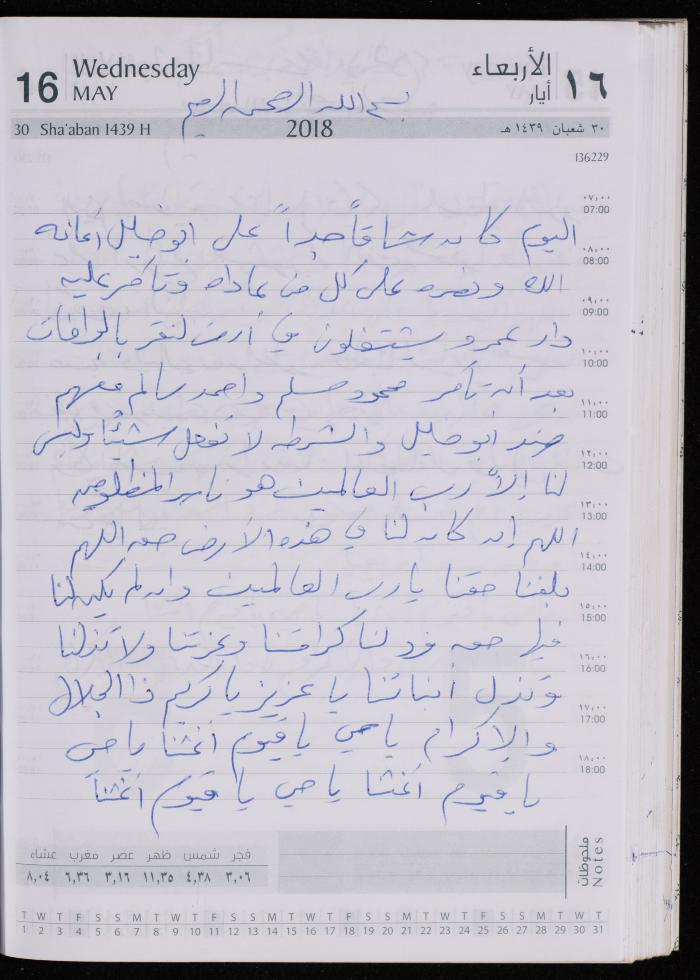 16 Wednesday MAY
الأربعاء أيار ١٦
بسم الله الرحمن الرحيم
30 Sha'aban 1439 H 2018 ٣٠ شعبان ١٤٣٩ هـ
136229
٠٧,٠٠ 07:00
اليوم كان شاقاً جداً على ابو خليل اعانه
٠٨,٠٠ 08:00
الله ونصره على كل من عاداه وتآمر عليه
٠٩,٠٠ 09:00
دار عمرو يشتغلون في أرض لنقر بالجرافات
١٠,٠٠ 10:00
بعد أن تآمر محمود مسلم واحمد سالم معهم
١١,٠٠ 11:00
ضد ابو خليل والشرطه لا تفعل شيئاً وليس
١٢,٠٠ 12:00
لنا إلاّ رب العالمين هو ناصر المظلومين
١٣,٠٠ 13:00
اللهم إن كان لنا في هذه الأرض حق اللهم
١٤,٠٠ 14:00
بلغنا حقنا يا رب العالمين وان لم يكن لنا
١٥,٠٠ 15:00
فيها حق فرد لنا كرامتنا وعزتنا ولا تذلنا
١٦,٠٠ 16:00
وتذل ابنائنا يا عزيز يا كريم ذا الجلال
١٧,٠٠ 17:00
والإكرام يا حي يا قيوم أغثنا يا حي
١٨,٠٠ 18:00
يا قيوم أغثنا يا حي يا قيوم أغثنا
ملحوظات Notes
فجر شمس ظهر عصر مغرب عشاء
٣,٠٦ ٤,٣٨ ١١,٣٥ ٣,١٦ ٦,٣٦ ٨,٠٤
T W T F S S M T W T F S S M T W T F S S M T W T F S S M T W T
1 2 3 4 5 6 7 8 9 10 11 12 13 14 15 16 17 18 19 20 21 22 23 24 25 26 27 28 29 30 31